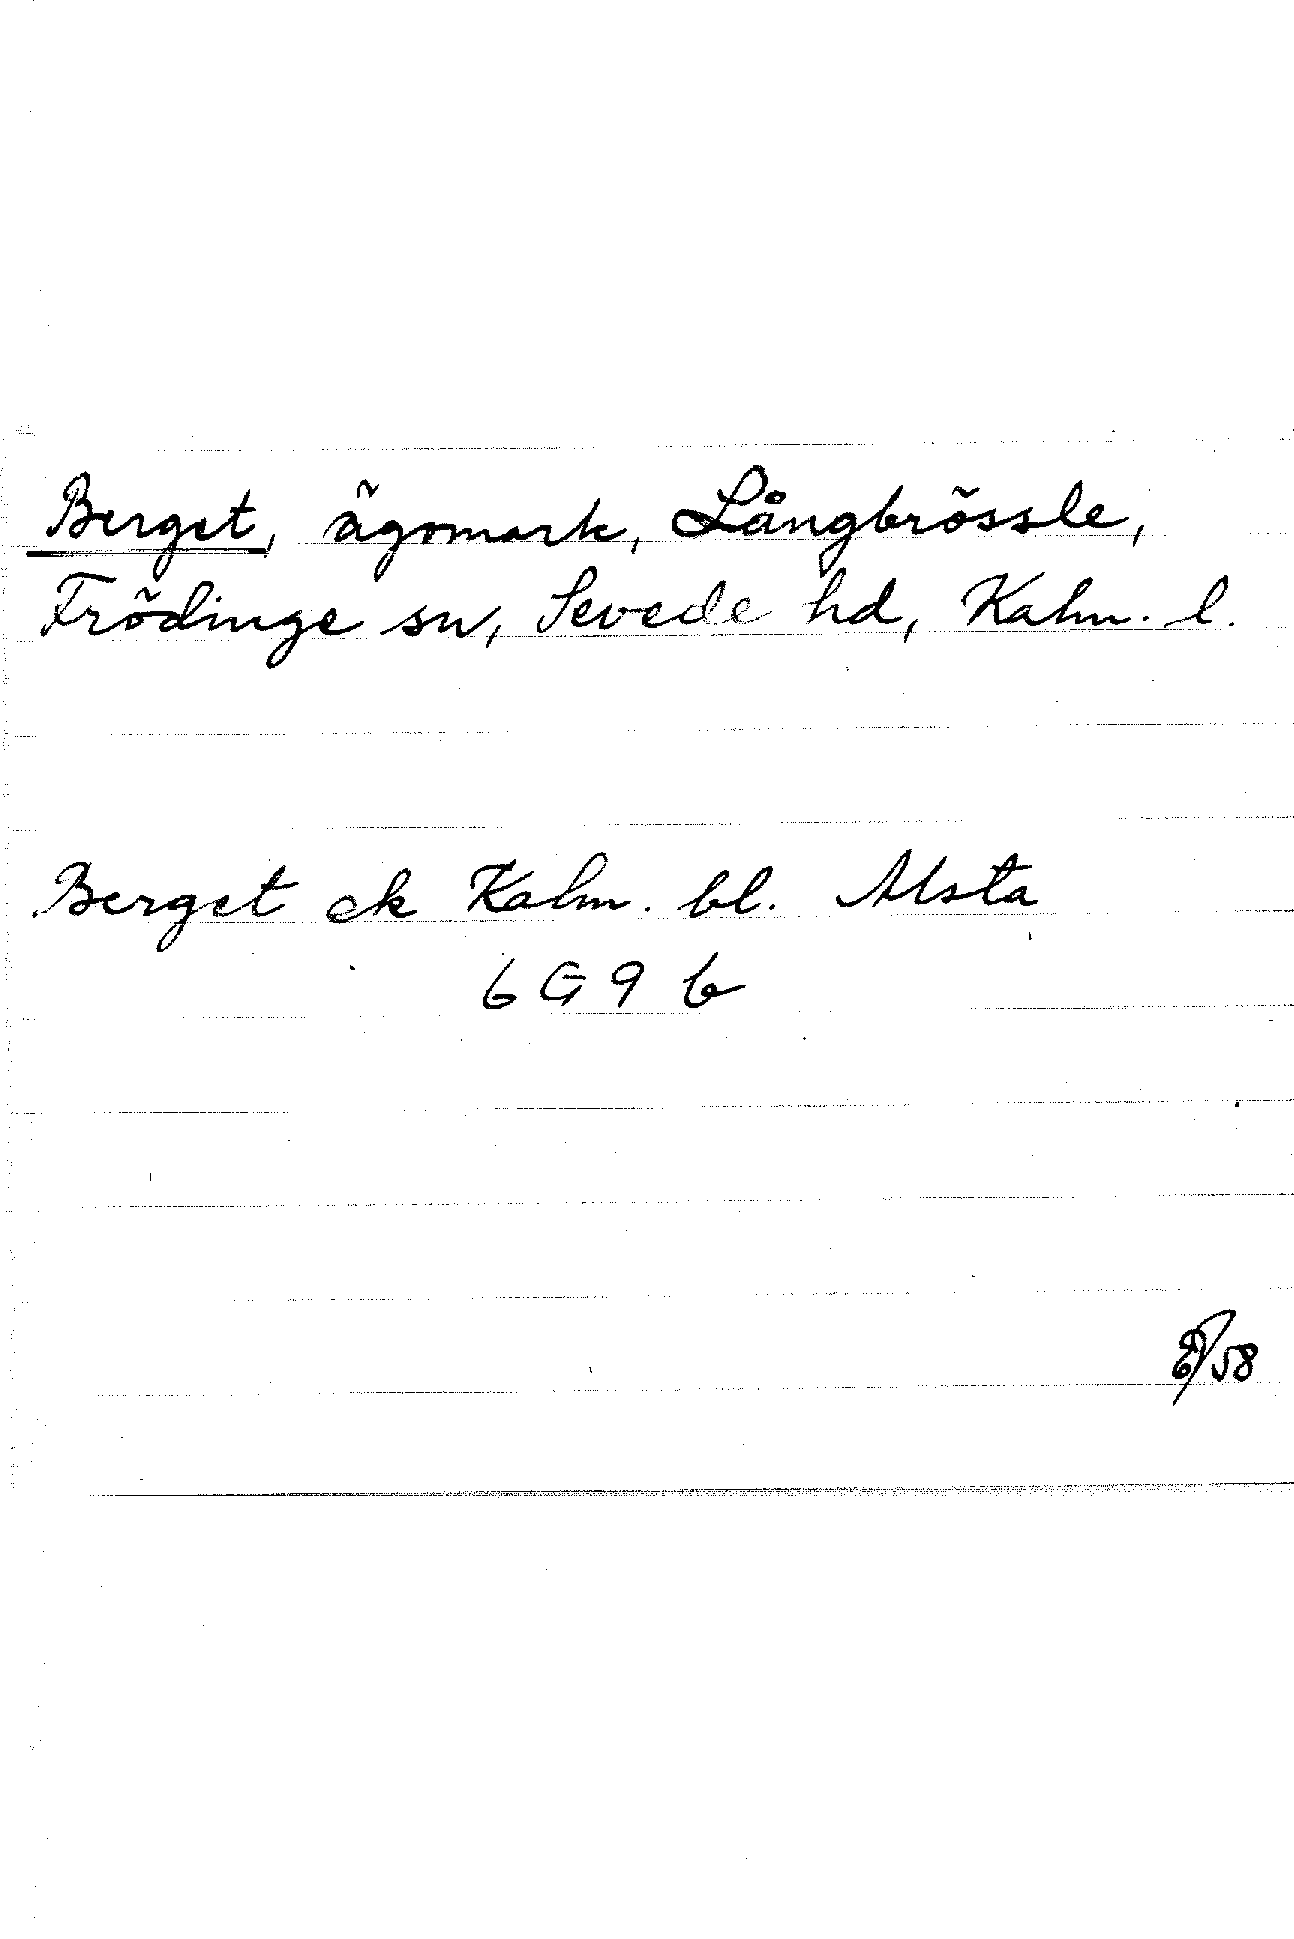 Berget, ägomark, Långbrössle,
Frödinge sn, Sevede hd, Kalm. l.
Berget ek Kalm. bl. Alsta
6G9 b
/58